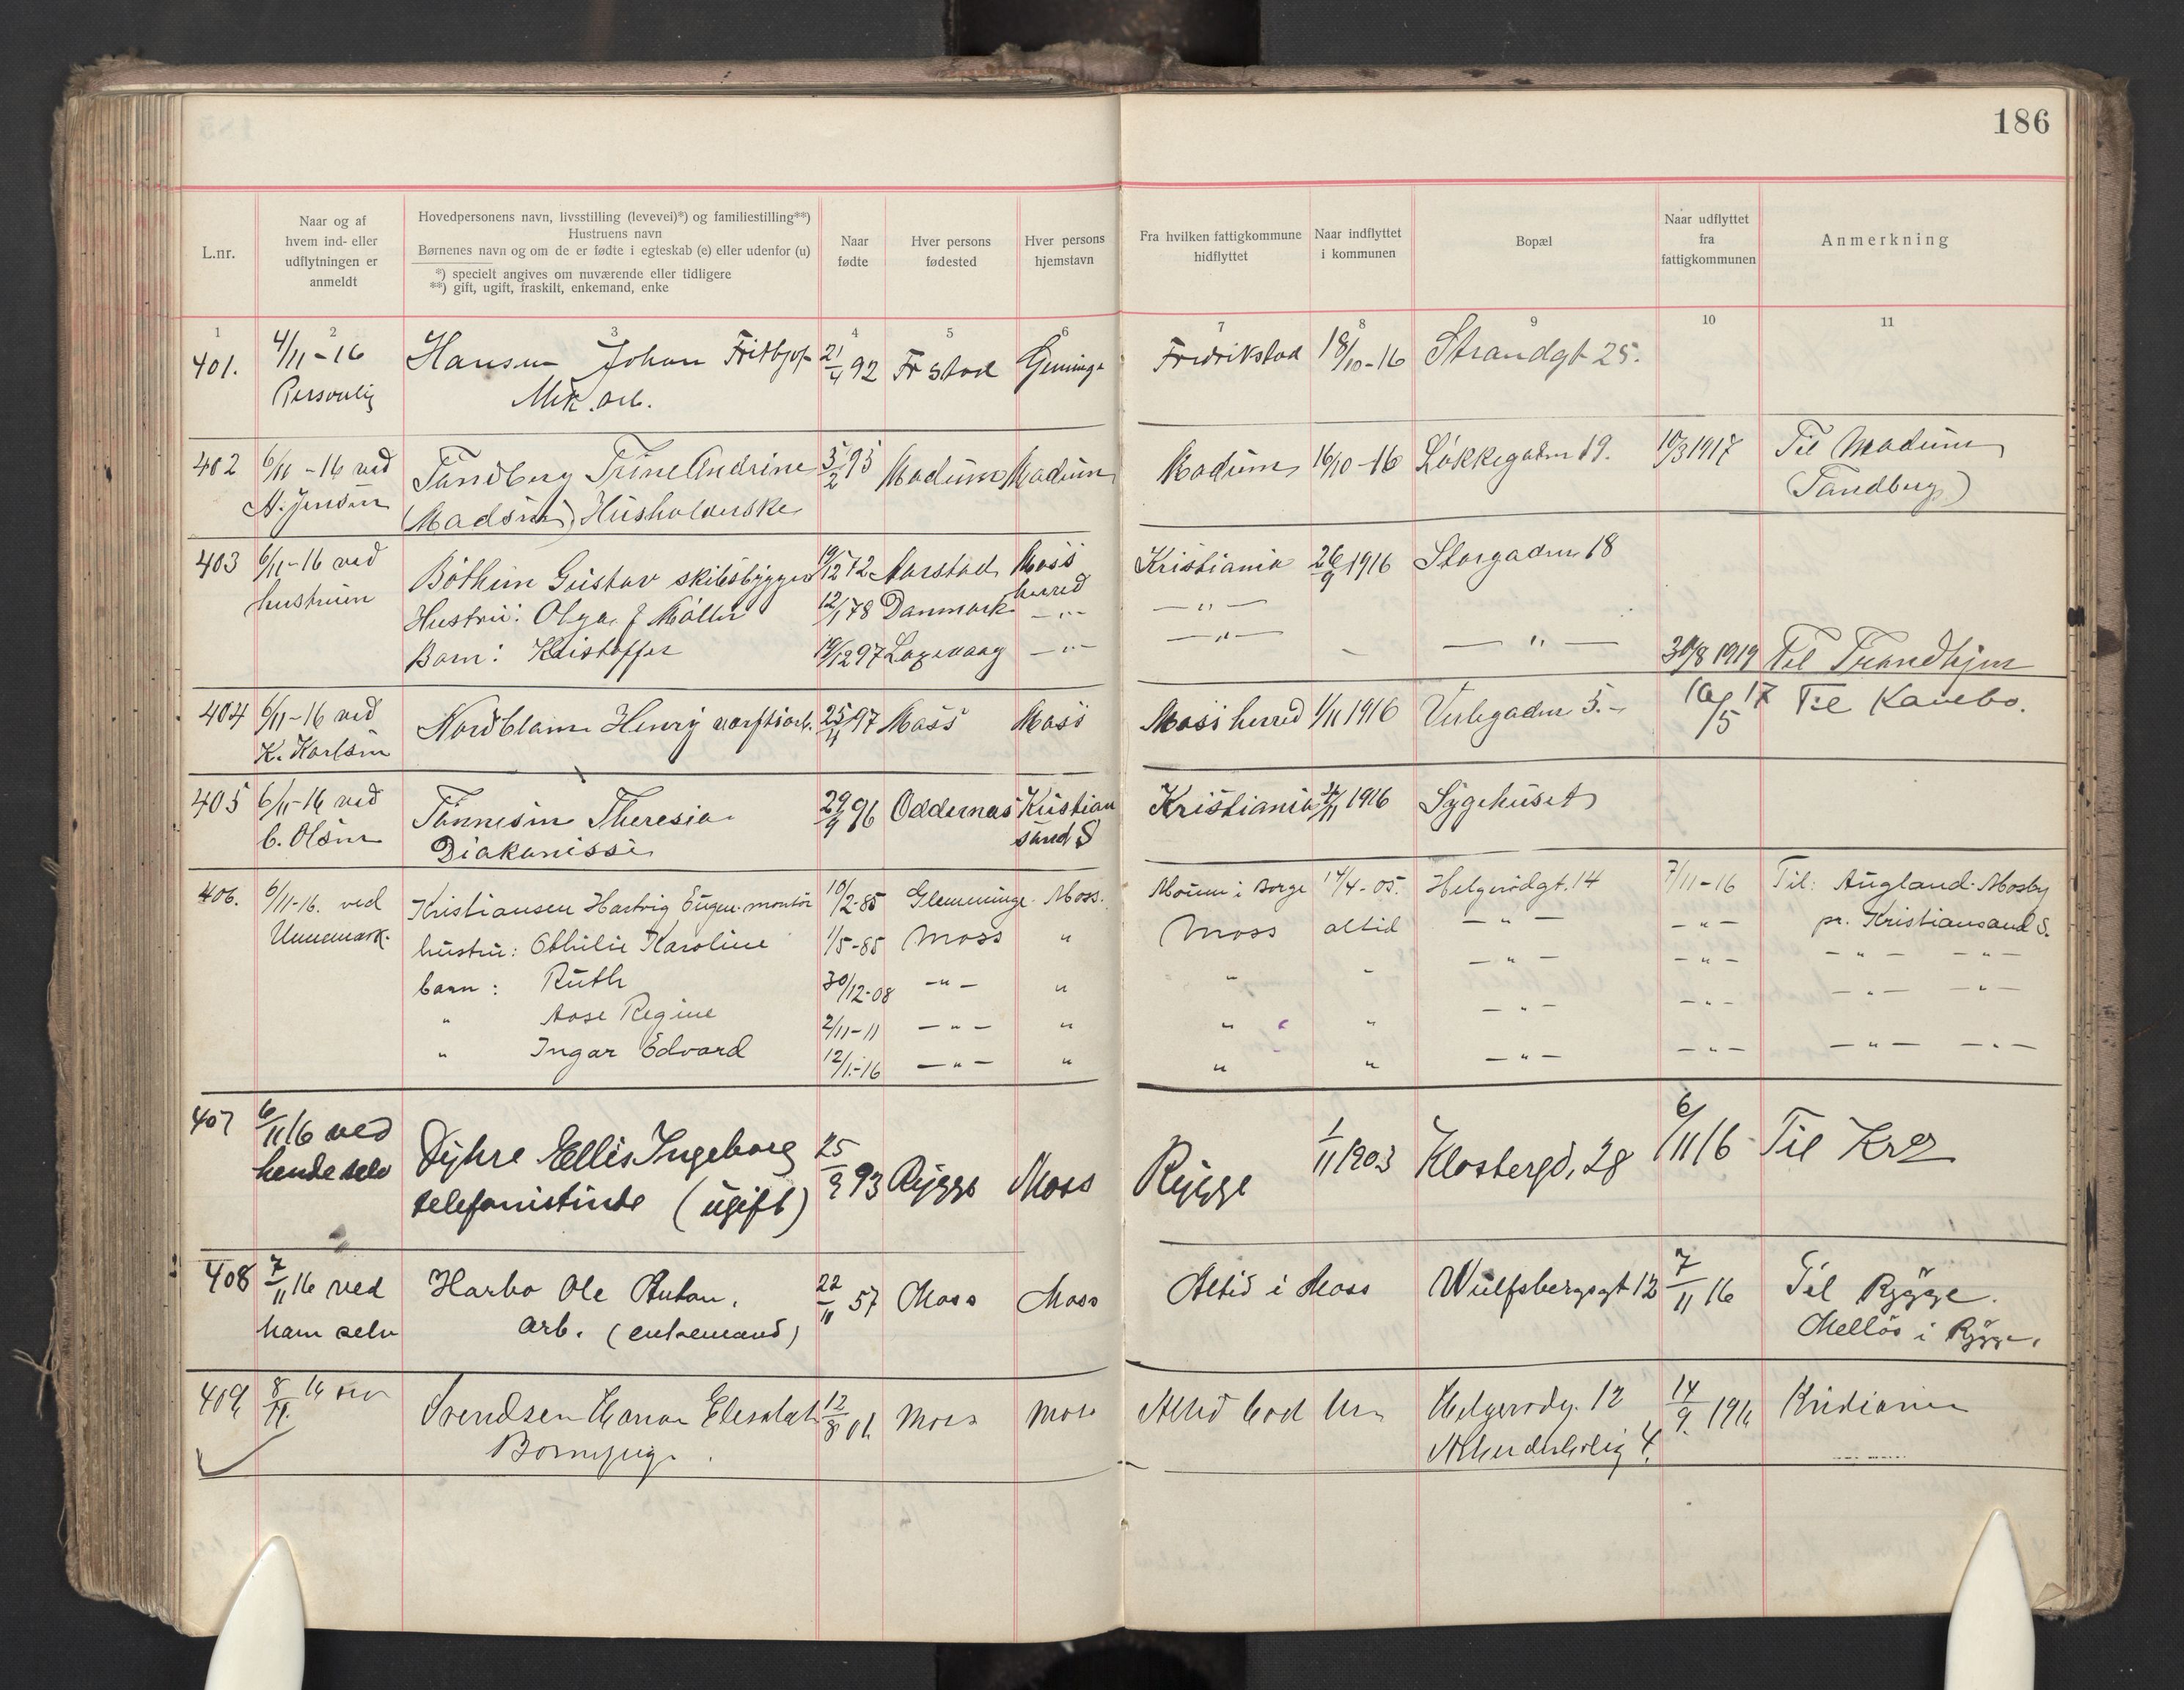 186
L.nr.
Naar og af hvem ind- eller udflytningen er anmeldt
Hovedpersonens navn, livsstilling (levevei)*) og familiestilling**)
Hustruens navn
Børnenes navn og om de er fødte i egteskab (e) eller udenfor (u)
*) specielt angives om nuværende eller tidligere
**) gift, ugift, fraskilt, enkemand, enke
Naar fødte
Hver persons fødested
Hver persons hjemstavn
Fra hvilken fattigkommune hidflyttet
Naar indflyttet i kommunen
Bopæl
Naar udflyttet fra fattigkommunen
Anmerkning
1 2 3 4 5 6 7 8 9 10 11
401. 4/11-16 Hansen Johan Fritbjof 21/4 92 Fr stad Fredrikstad 18/10-16 Strandgt 25.
Personlig Mek. arb.
402 6/11-16 ved Tandberg Trine Andrine 5/2 95 Modum Modum Modum 16/10-16 Løkkegaden 19. 10/3 1917 Til Modum
A. Jensen (Madsen) Husholderske (Tandberg)
403 6/11-16 ved Bøthun Gustav skibsbygger 19/12 72 Aarstad Moss herred Kristiania 26/9 1916 Storgaden 18
hustruen Hustru: Olga f Møller 12/1 78 Danmark — " — — " —
Barn: Kristoffer 19/12 97 Laxevaag — " — — " — — " — 30/8 1919 Til Trondhjem
404 6/11-16 ved Nordblom Henry værftsarb. 25/11 97 Moss Moss Moss herred 1/11 1916 Verlegaden 5. 10/5 17 Til Kambo.
K. Karlsen
405 6/11-16 ved Tønnesen Theresia 29/9 96 Oddernes Kristian Kristiania 1916 Sygehuset
C. Olsen Diakonisse sand S
406. 6/11-16. ved Kristiansen Hartvig Eugen. montør 10/2-85 Glemminge Moss. Moum i Borge 14/4-05. Helgerødgt. 14 7/11-16 Til: Augland. Mosby
Unnemark. hustru: Othilie Karoline 1/5-85 Moss " Moss altid — " — — " — pr. Kristiansand S.
barn: Ruth 30/12-08 — " — " " " — " — — " — — " — — " —
" Aase Regine 2/11-11 — " — " " " — " — — " — — " — — " —
" Ingar Edvard 12/1-16 — " — " " " — " — — " — — " — — " —
407 6/11 16 ved Dyhre Ellis Ingeborg 25/9 93 Rygge Moss Rygge 1/11 1903 Klostergd. 28 6/11 16 Til Kra
hende selv telefonistinde (ugift)
408 7/11 16 ved Harbo Ole Anton. 22/11 57 Moss Moss Altid i Moss Wulfsbergsgt 12 7/11 16 Til Rygge.
ham selv arb. (enkemand) Melløs i Rygge.
409 8/11. 16 Svendsen 12/8 01 Moss Moss Altid bod her Helgerødg. 12 14/9. 1916 Kristiania
Barnepige Arbeiderbolig 4.